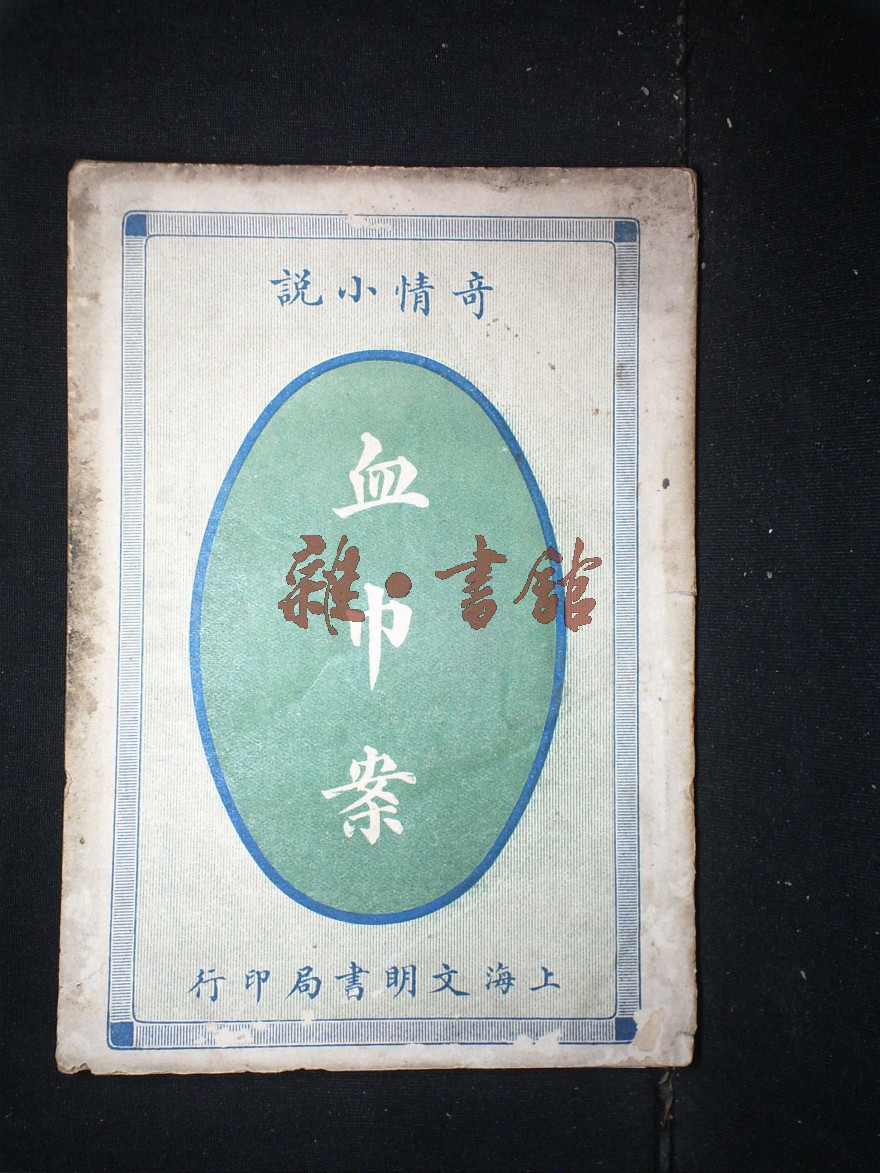 奇情小説
血巾案
雜·書館
上海文明書局印行